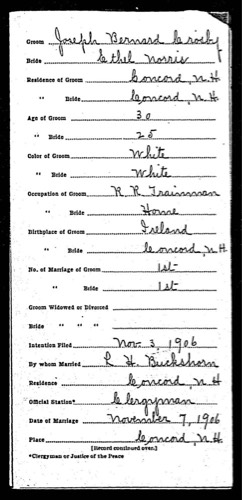 Groom Joseph Bernard Crosby
Bride Ethel Norris
Residence of Groom Concord, N.H.
" Bride Concord, N.H.
Age of Groom 30
" Bride 25
Color of Groom White
" Bride White
Occupation of Groom R. R. Trainman
" Bride Home
Birthplace of Groom Ireland
" Bride Concord, N.H.
No. of Marriage of Groom 1st
" Bride 1st
Groom Widowed or Divorced
Bride " " "
Intention Filed Nov. 3, 1906
By whom Married L H. Buckshorn
Residence Concord, N.H
Official Station* Clergyman
Date of Marriage November 7, 1906
Place Concord, N.H.
[Record continued over.]
*Clergyman or Justice of the Peace